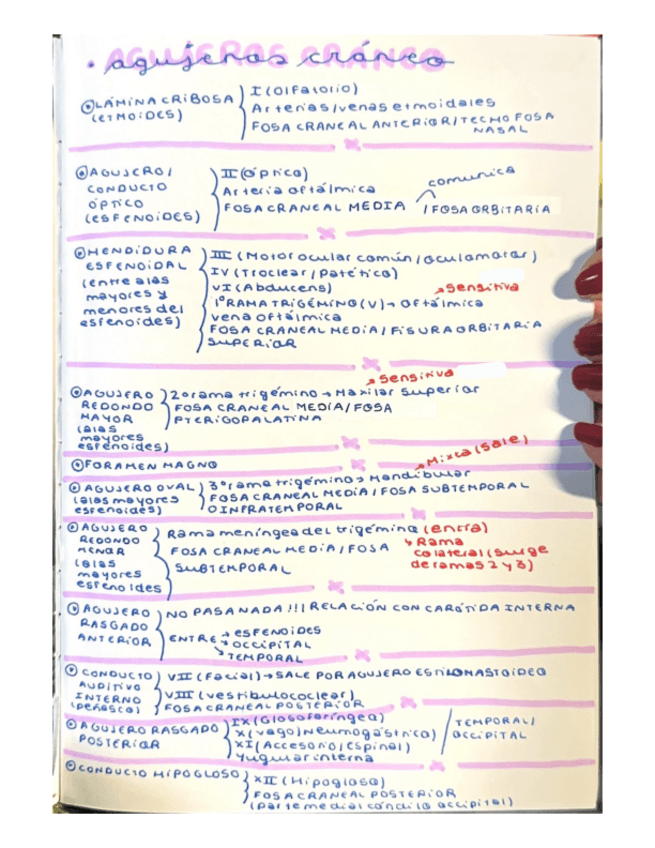 AGUJEROS CRÁNEO
• agujeros cráneo
LÁMINA CRIBOSA
(ETMOIDES)
I (Olfatorio)
Arterias/venas etmoidales
FOSA CRANEAL ANTERIOR/TECHO FOSA
NASAL
AGUJERO/
CONDUCTO
ÓPTICO
(ESFENOIDES)
II (Óptico)
Arteria oftálmica
FOSA CRANEAL MEDIA
comunica
/FOSA ORBITARIA
HENDIDURA
ESFENOIDAL
(entre alas
mayores y
menores del
esfenoides)
III (Motor ocular común/oculomotor)
IV (Troclear/patético)
VI (Abducens)
1º RAMA TRIGÉMINO (V) → Oftálmica
→ Sensitiva
vena oftálmica
FOSA CRANEAL MEDIA/FISURA ORBITARIA
SUPERIOR
AGUJERO
REDONDO
MAYOR
(alas
mayores
esfenoides)
→ Sensitiva
2º rama trigémino → Maxilar superior
FOSA CRANEAL MEDIA/FOSA
PTERIGOPALATINA
FORAMEN MAGNO
AGUJERO OVAL
(alas mayores
esfenoides)
→ Mixta (Sale)
3º rama trigémino → Mandibular
FOSA CRANEAL MEDIA/FOSA SUBTEMPORAL
O INFRATEMPORAL
AGUJERO
REDONDO
MENOR
(alas
mayores
esfenoides
Rama meníngea del trigémino (entra)
FOSA CRANEAL MEDIA/FOSA
SUBTEMPORAL
↳ Rama
colateral (surge
de ramas 2 y 3)
AGUJERO
RASGADO
ANTERIOR
NO PASA NADA!!! RELACIÓN CON CARÓTIDA INTERNA
ENTRE → ESFENOIDES
→ OCCIPITAL
→ TEMPORAL
CONDUCTO
AUDITIVO
INTERNO
(peñasco)
VII (Facial) → SALE POR AGUJERO ESTILOMASTOIDEO
VIII (vestibulococlear)
FOSA CRANEAL POSTERIOR
AGUJERO RASGADO
POSTERIOR
IX (Glosofaríngeo)
X (vago/Neumogástrico)
XI (Accesorio/Espinal)
Yugular interna
TEMPORAL/
OCCIPITAL
CONDUCTO HIPOGLOSO
XII (Hipogloso)
FOSA CRANEAL POSTERIOR
(parte medial cóndilo occipital)